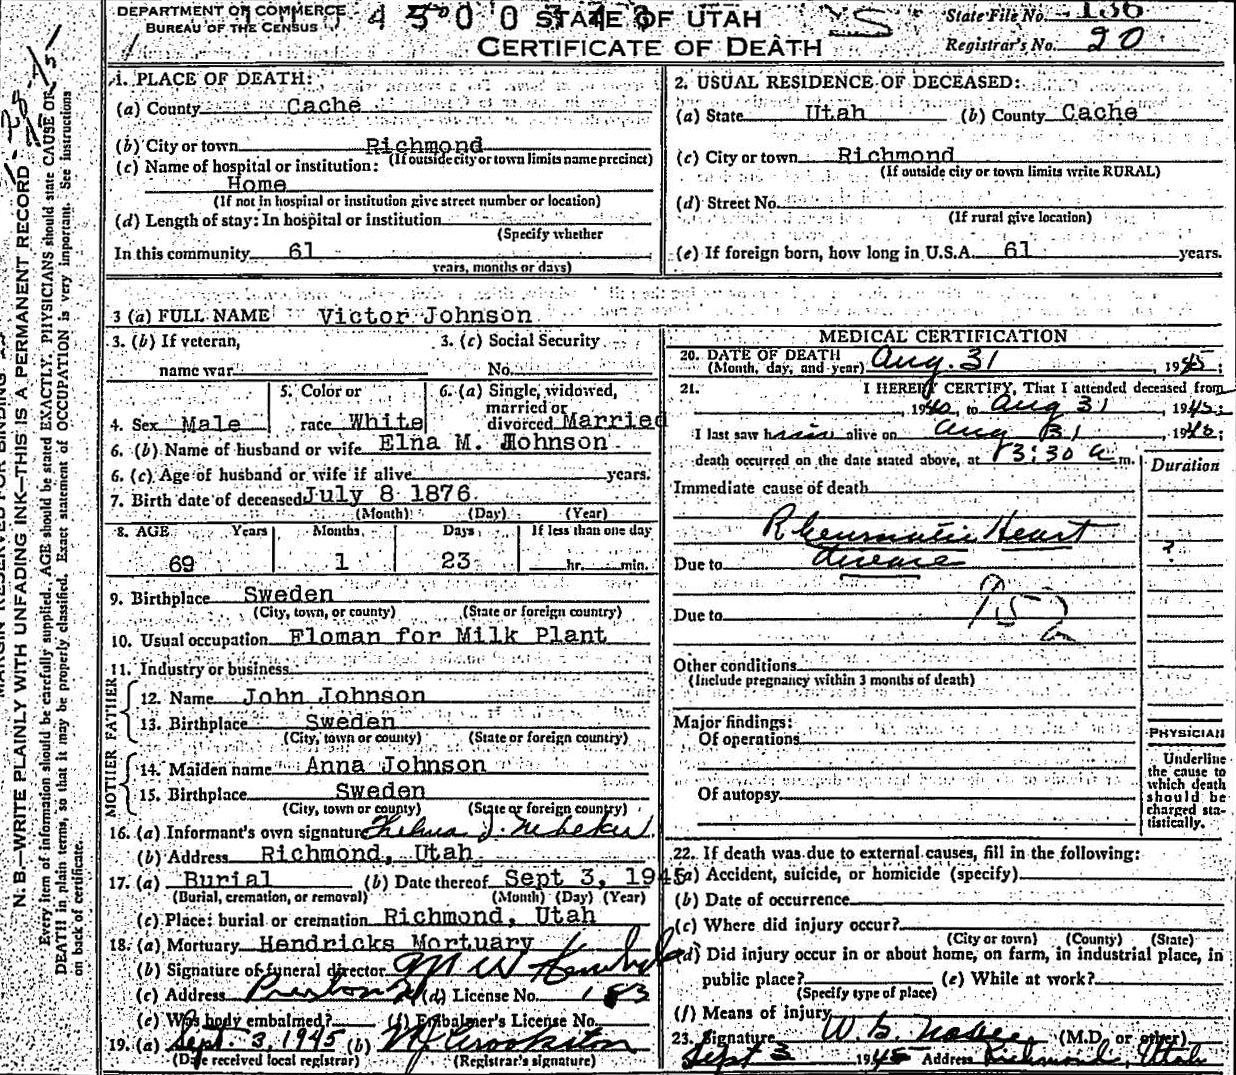 DEPARTMENT OF COMMERCE
BUREAU OF THE CENSUS
STATE OF UTAH
CERTIFICATE OF DEATH
State File No. 136
Registrar's No. 20
1. PLACE OF DEATH:
(a) County Cache
(b) City or town Richmond
(If outside city or town limits name precinct)
(c) Name of hospital or institution:
Home
(If not in hospital or institution give street number or location)
(d) Length of stay: In hospital or institution
(Specify whether
In this community 61
years, months or days)
2. USUAL RESIDENCE OF DECEASED:
(a) State Utah (b) County Cache
(c) City or town Richmond
(If outside city or town limits write RURAL)
(d) Street No.
(If rural give location)
(e) If foreign born, how long in U.S.A. 61 years.
3 (a) FULL NAME Victor Johnson
3. (b) If veteran,
name war
3. (c) Social Security
No.
4. Sex Male
5. Color or
race White
6. (a) Single, widowed,
married or
divorced Married
6. (b) Name of husband or wife Elna M. Johnson
6. (c) Age of husband or wife if alive years.
7. Birth date of deceased July 8 1876
(Month) (Day) (Year)
8. AGE Years Months Days If less than one day
69 1 23 hr. min.
9. Birthplace Sweden
(City, town, or county) (State or foreign country)
10. Usual occupation Floman for Milk Plant
11. Industry or business
FATHER
12. Name John Johnson
13. Birthplace Sweden
(City, town or county) (State or foreign country)
MOTHER
14. Maiden name Anna Johnson
15. Birthplace Sweden
(City, town or county) (State or foreign country)
16. (a) Informant's own signature Thelma J. Nebeker
(b) Address Richmond, Utah
17. (a) Burial (b) Date thereof Sept 3, 1945
(Burial, cremation, or removal) (Month) (Day) (Year)
(c) Place: burial or cremation Richmond, Utah
18. (a) Mortuary Hendricks Mortuary
(b) Signature of funeral director M W
(c) Address Preston (d) License No. 183
(e) Was body embalmed? (f) Embalmer's License No.
19. (a) Sept. 3, 1945 (b) Crookston
(Date received local registrar) (Registrar's signature)
MEDICAL CERTIFICATION
20. DATE OF DEATH
(Month, day, and year) Aug. 31, 1945;
21. I HEREBY CERTIFY, That I attended deceased from
, 1940, to Aug 31, 1945;
I last saw him alive on Aug 31, 1945;
death occurred on the date stated above, at 3:30 a m.
Duration
Immediate cause of death
Rheumatic Heart
Due to disease
?
Due to
Other conditions
(Include pregnancy within 3 months of death)
Major findings:
Of operations
Of autopsy
PHYSICIAN
Underline
the cause to
which death
should be
charged sta-
tistically.
22. If death was due to external causes, fill in the following:
(a) Accident, suicide, or homicide (specify)
(b) Date of occurrence
(c) Where did injury occur?
(City or town) (County) (State)
(d) Did injury occur in or about home, on farm, in industrial place, in
public place? (e) While at work?
(Specify type of place)
(f) Means of injury
23. Signature W. G. (M.D. or other)
Sept 3 1945 Address Richmond, Utah
N. B.—WRITE PLAINLY WITH UNFADING INK—THIS IS A PERMANENT RECORD
Every item of information should be carefully supplied. AGE should be stated EXACTLY. PHYSICIANS should state CAUSE OF
DEATH in plain terms, so that it may be properly classified. Exact statement of OCCUPATION is very important. See instructions
on back of certificate.